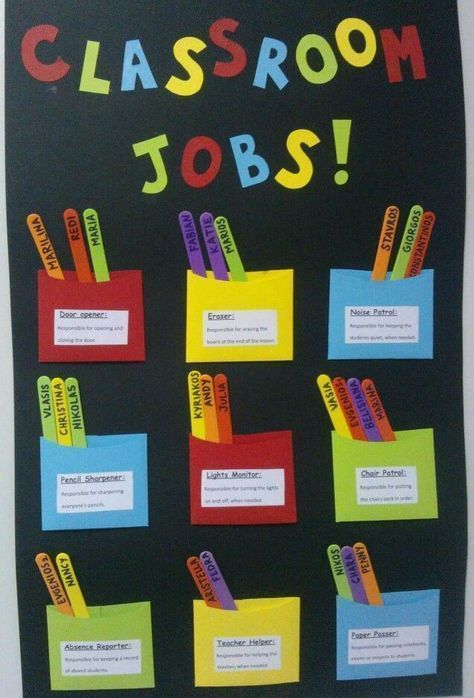 CLASSROOM
JOBS!
MARILINA
REDI
MARIA
Door opener:
Responsible for opening and
closing the door.
FABIAN
KATIE
MARIOS
Eraser:
Responsible for erasing the
board at the end of the lesson.
STAVROS
GIORGOS
KONSTANTINOS
Noise Patrol:
Responsible for keeping the
students quiet, when needed.
VLASIS
CHRISTINA
NIKOLAS
Pencil Sharpener:
Responsible for sharpening
everyone's pencils.
KYRIAKOS
ANDY
JULIA
Lights Monitor:
Responsible for turning the lights
on and off, when needed.
VASIA
EVGENIOS
BESSIANA
MARINA
Chair Patrol:
Responsible for putting
the chairs back in order.
EVGENIOS2
NANCY
Absence Reporter:
Responsible for keeping a record
of absent students.
ARISTELLA
FEDRA
Teacher Helper:
Responsible for helping the
teacher, when needed.
NIKOS
CHARA
PENNY
Paper Passer:
Responsible for passing notebooks,
exams or projects to students.